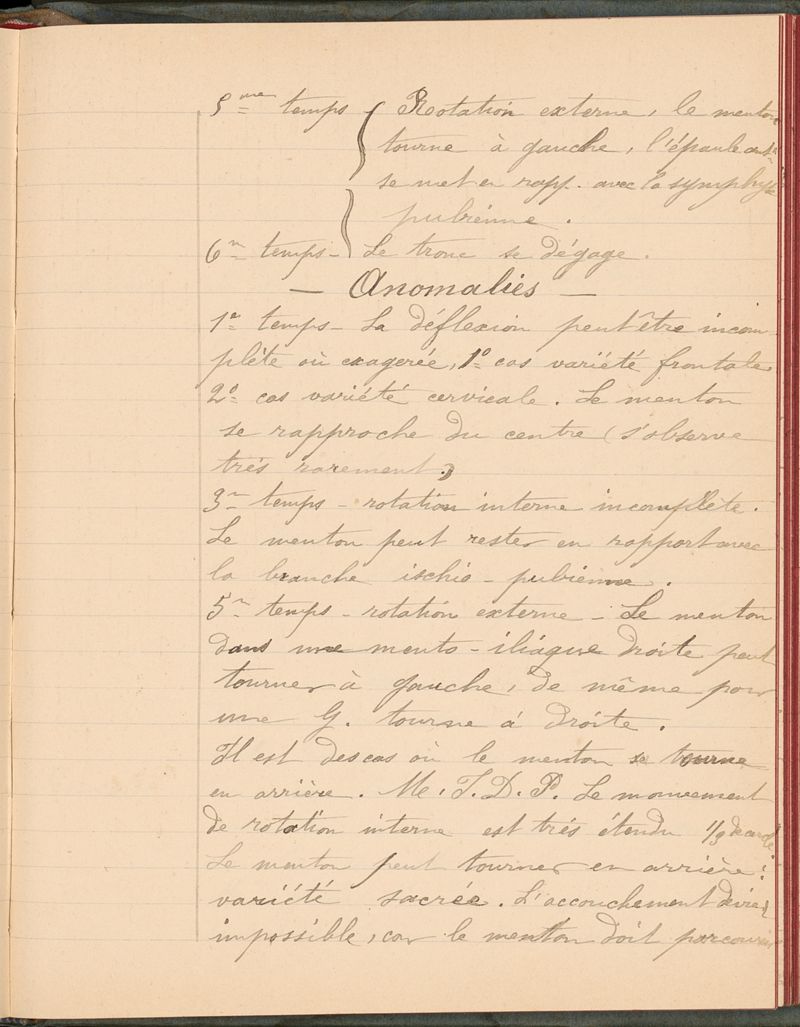 5me temps { Rotation externe, le menton
tourne à gauche, l'épaule antre
se met en rapp. avec la symphyse
pubienne.
6me temps - Le tronc se dégage.
- Anomalies -
1er temps - La déflexion peut être incom
plète où exagerée, 1o cas variété frontale
2o cas variété cervicale. Le menton
se rapproche du centre (s'observe
très rarement.)
3me temps - rotation interne incomplète.
Le menton peut rester en rapport avec
la branche ischio-pubienne.
5me temps - rotation externe - Le menton
dans une mento-iliaque droite peut
tourner à gauche, de même pour
une G. tourne à droite.
Il est des cas où le menton se tourne
en arrière. M.I.D.P. Le mouvement
de rotation interne est très étendu 1/3 de cercle.
Le menton peut tourner en arrière:
variété sacrée. L'accouchement devient
impossible, car le menton doit parcourir